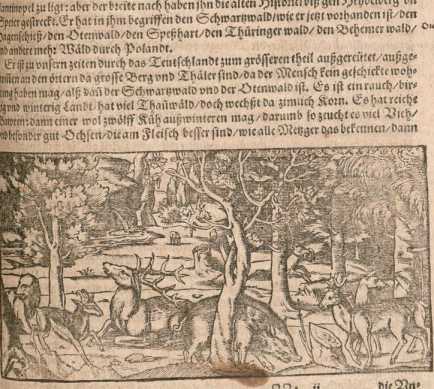 zu ligt: aber der breite nach haben jhn die alten Historici biß gen Heydelberg vn
Speir gestreckt. Er hat in jhm begriffen den Schwartzwald/wie er jetzt vorhanden ist/den
Hagenschieß/den Otenwald/den Speßhart/den Thüringer wald/den Behemer wald/
vnd andere mehr Wäld durch Polandt.
Er ist zu vnsern zeiten durch das Teutschlandt zum grösseren theil außgereütet/außge-
an den örtern da grosse Berg vnd Thäler sind/da der Mensch kein geschickte woh-
nung haben mag/alß dañ der Schwartzwald vnd der Otenwald ist. Es ist ein rauch/bir-
gig vnd winterig Landt/hat viel Thañwäld/doch wechßt da zimlich Korn. Es hat reiche
Bawren: dann einer wol zwölff Küh außwinteren mag/darumb so zeucht es viel Vich/
vnd besonder gut Ochsen/die am Fleisch besser sind/wie alle Metzger das bekennen/dann
die